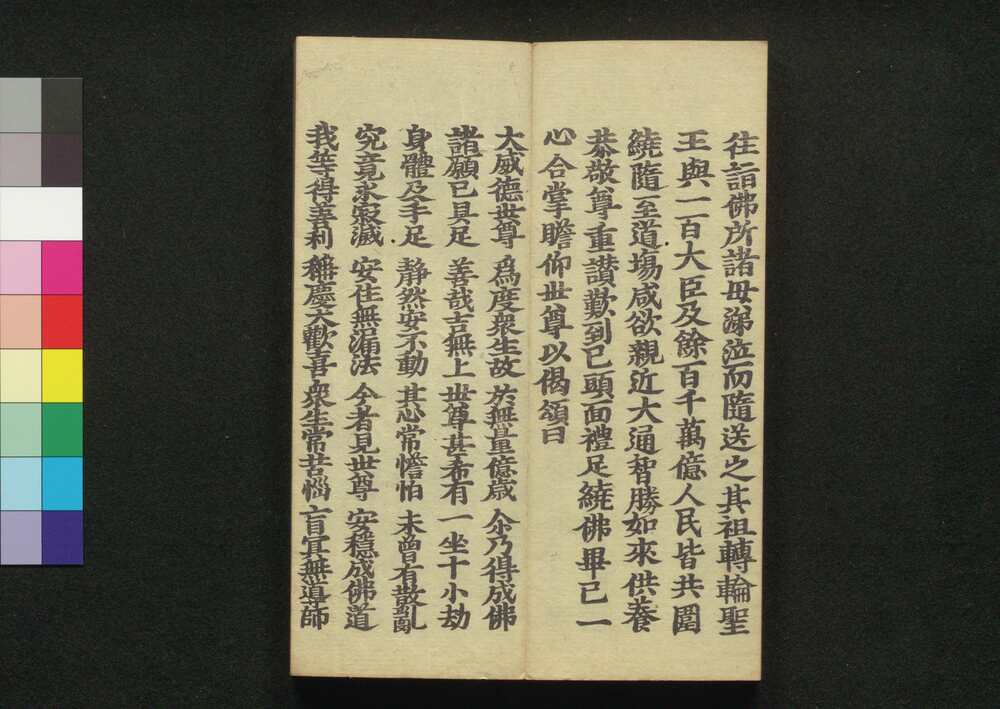 往詣佛所諸母涕泣而隨送之其祖轉輪聖
王與一百大臣及餘百千萬億人民皆共圍
繞隨至道場咸欲親近大通智勝如來供養
恭敬尊重讃歎到已頭面禮足繞佛畢已一
心合掌瞻仰世尊以偈頌曰
大威德世尊 爲度衆生故 於無量億歳 尒乃得成佛
諸願已具足 善哉吉無上 世尊甚希有 一坐十小劫
身體及手足 静然安不動 其心常憺怕 未曽有散亂
究竟永寂滅 安住無漏法 今者見世尊 安穩成佛道
我等得善利 稱慶大歡喜 衆生常苦惱 盲冥無導師